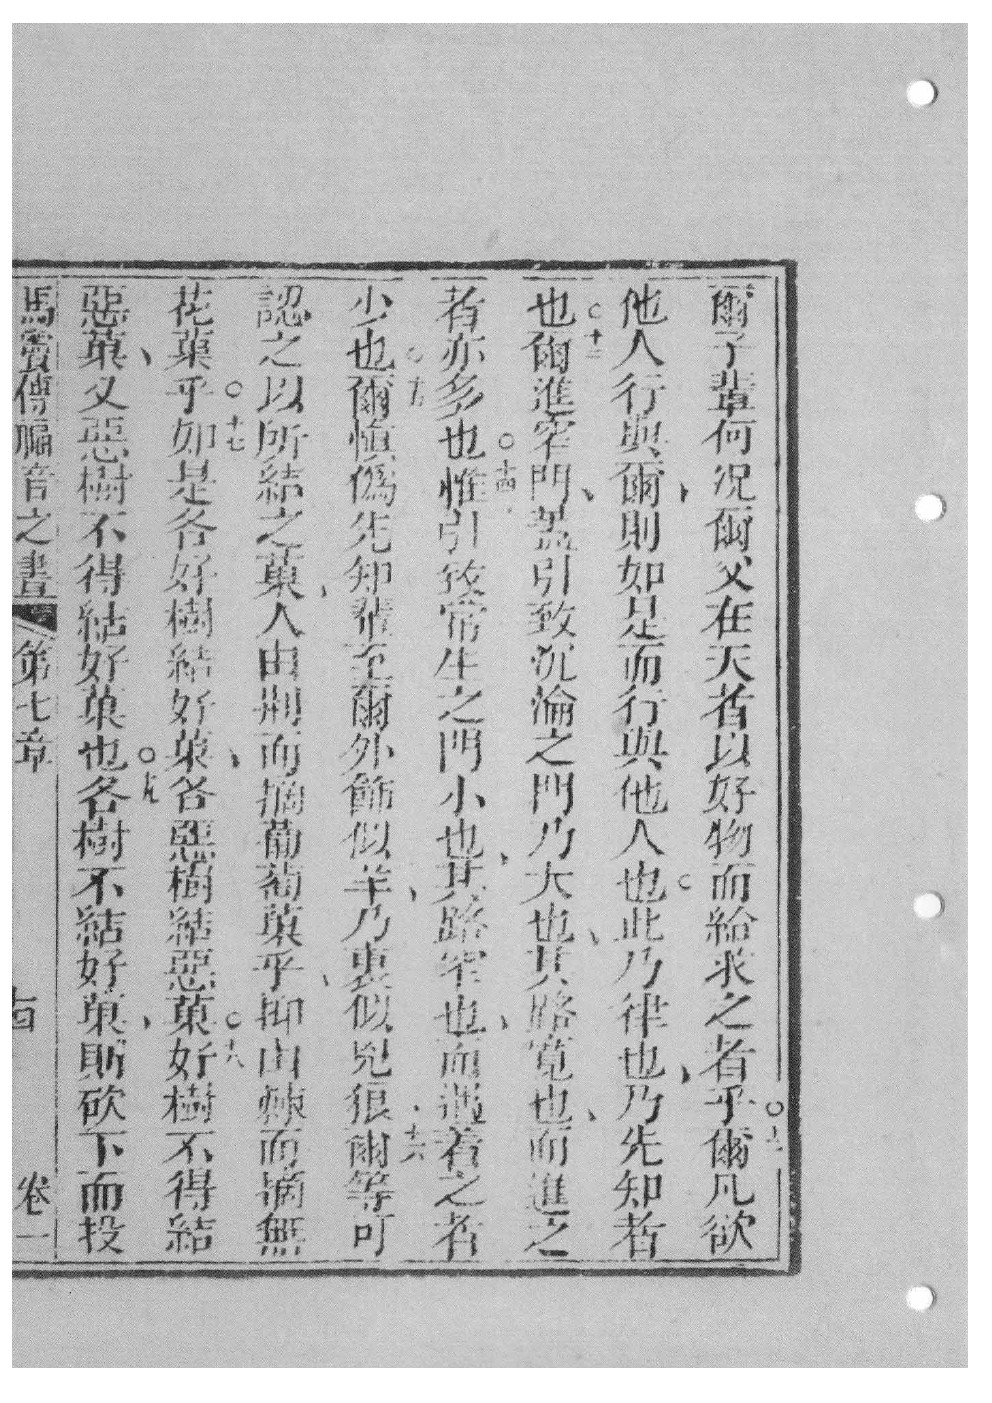 爾子輩何況爾父在天者以好物而給求之者乎○十二爾凡欲
他人行與爾、則如是而行與他人也○此乃律也、乃先知者
也○十三爾進窄門、蓋引致沉淪之門乃大也、其路寬也、而進之
者亦多也○十四惟引致常生之門小也、其路窄也、而遇着之者
少也○十五爾慎僞先知輩至爾外飾似羊、乃裏似兇狼○十六爾等可
認之以所結之菓、人由荆而摘葡萄菓乎、抑由棘而摘無
花菓乎○十七如是各好樹結好菓、各惡樹結惡菓○十八好樹不得結
惡菓、又惡樹不得結好菓也○十九各樹不結好菓、則砍下而投
馬竇傳福音之書 第七章 卷一